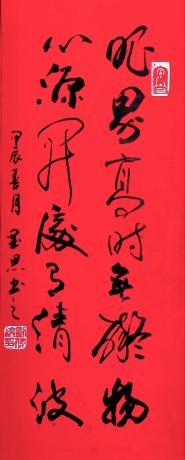 眼界高时无碍物
心源开处有清波
甲辰春月 墨思书之